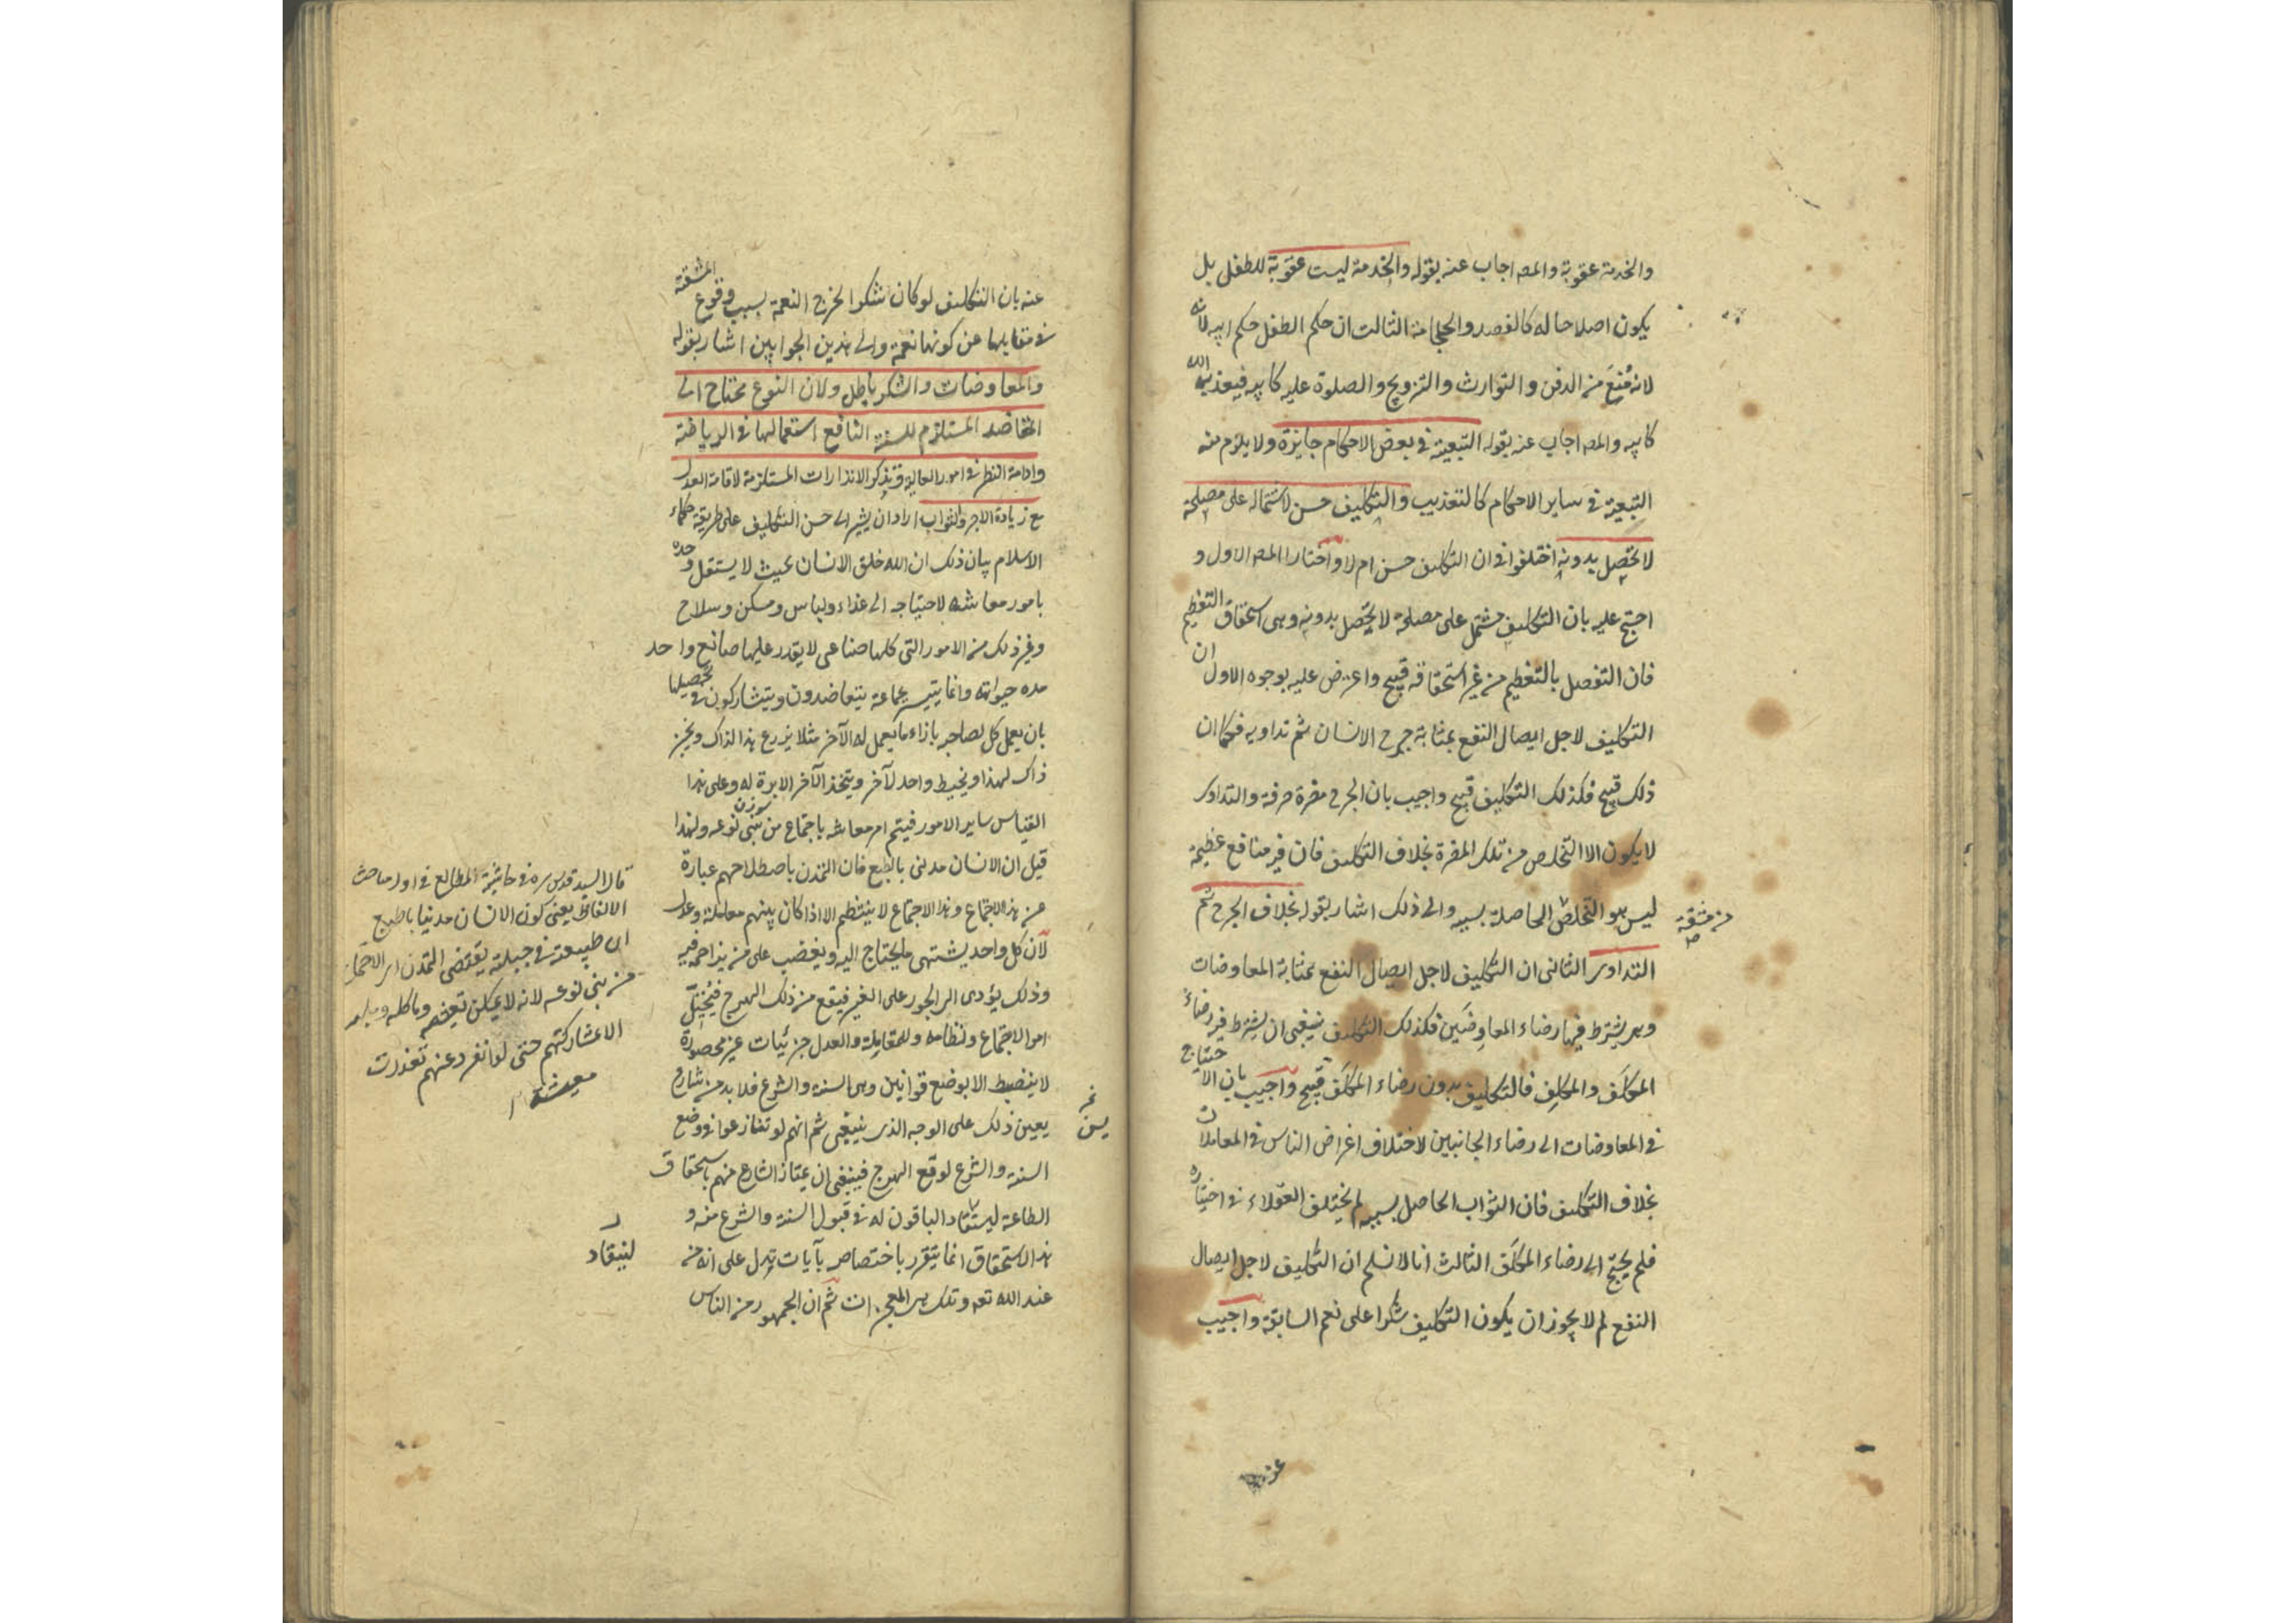 والخدمة عقوبة والمص اجاب عنه بقوله والخدمة ليست عقوبة للطفل بل
يكون اصلاحا له كالفصد والحجامة الثالث ان حكم الطفل حكم ابيه لانه
لانه مُنِعَ من الدفن والتوارث والتزويج والصلوة عليه كابيه فيعذبه الله
كابيه والمص اجاب عنه بقوله التبعية في بعض الاحكام جايزة ولا يلزم منه
التبعية في ساير الاحكام كالتعذيب والتكليف حسن لاشتماله على مصلحة
لا تحصل بدونه اختلفوا في ان التكليف حسن ام لا واختار المص الاول و
احتج عليه بان التكليف مشتمل على مصلحة لا يحصل بدونه وهى استحقاق التعظيم
فان التفضل بالتعظيم من غير استحقاقه قبيح واعترض عليه بوجوه الاول ان
التكليف لاجل ايصال النفع بمثابة جرح الانسان ثم تداويه فكما ان
ذلك قبيح فكذلك التكليف قبيح واجيب بان الجرح مضرة صرفة والتداوى
لا يكون الا التخلص من تلك المضرة بخلاف التكليف فان فيه منافع عظيمة
ليس هو التخلص الحاصلة بسببه والى ذلك اشار بقوله بخلاف الجرح ثم
من مشقة
التداوى الثانى ان التكليف لاجل ايصال النفع بمثابة المعاوضات
وهى يشترط فيها رضاء المعاوضَين فكذلك التكليف ينبغى ان يشترط فيه رضاء
المكلَف والمكلِف فالتكليف بدون رضاء المكلَف قبيح واجيب بان الاحتياج
في المعاوضات الى رضاء الجانبين لاختلاف اغراض الناس في المعاملات
بخلاف التكليف فان الثواب الحاصل بسببه لم يختلف العقلاء في اختياره
فلم يحتج الى رضاء المكلَف الثالث انا لا نسلم ان التكليف لاجل ايصال
النفع لم لا يجوز ان يكون التكليف شكرا على نعم السابقة واجيب
عنه بان التكليف لو كان شكرا لخرج النعمة بسبب وقوع المشقة
في مقابلها عن كونها نعمة والى هذين الجوابين اشار بقوله
والمعاوضات والشكر باطل ولان النوع محتاج الى
التعاضد المستلزم للسنة النافع استعمالها في الرياضة
وادامة النظر في امور العالية وتذكر الانذارات المستلزمة لاقامة العدل
مع زيادة الاجر والثواب اراد ان يشير الى حسن التكليف على طريقة حكماء
الاسلام بيان ذلك ان الله خلق الانسان بحيث لا يستقل وحده
بامور معاشه لاحتياجه الى غذاء ولباس ومسكن وسلاح
وغير ذلك من الامور التى كلها صناعى لا يقدر عليها صانع واحد
مدة حيواته وانما يتيسر بجماعة يتعاضدون ويتشاركون في تحصيلها
بان يعمل كل لصاحبه بازاء ما يعمل له الآخر مثلا يزرع هذا لذاك ويخبز
ذاك لهذا ويخيط واحد لآخر ويتخذ الآخر الابرة له وعلى هذا
سوزن
القياس ساير الامور فيتم امر معاشه باجتماع من بنى نوعه ولهذا
قيل ان الانسان مدنى بالطبع فان التمدن باصطلاحهم عبارة
عن هذا الاجتماع وهذا الاجتماع لا ينتظم الا اذا كان بينهم معاملة وعدل
لان كل واحد يشتهى ما يحتاج اليه ويغضب على من يزاحمه فيه
وذلك يؤدى الى الجور على الغير فيقع من ذلك الهرج فيختل
امر الاجتماع ونظامه وللمعاملة والعدل جزئيات غير محصورة
لا ينضبط الا بوضع قوانين وهى السنة والشرع فلا بد من شارع
يعين ذلك على الوجه الذى ينبغى ثم انهم لو تنازعوا في وضع
السنة والشرع لوقع الهرج فينبغى ان يمتاز الشارع منهم باستحقاق
الطاعة ليستقاد الباقون له في قبول السنة والشرع منه و
هذا الاستحقاق انما يتقرر باختصاصه بآيات تدل على انه من
عند الله تعه وتلك هى المعجزات ثم ان الجمهور من الناس
قال السيد قدس سره في حاشية المطالع في اول مباحث
الالفاظ يعنى كون الانسان مدنيا بالطبع
ان طبيعته في جبلته يقتضى التمدن اى الاجتماع
من بنى نوعه لانه لا يمكن تعيشه وماكله وملبسه
الا بمشاركتهم حتى لو انفرد عنهم تعذرت
معيشته
لينقاد